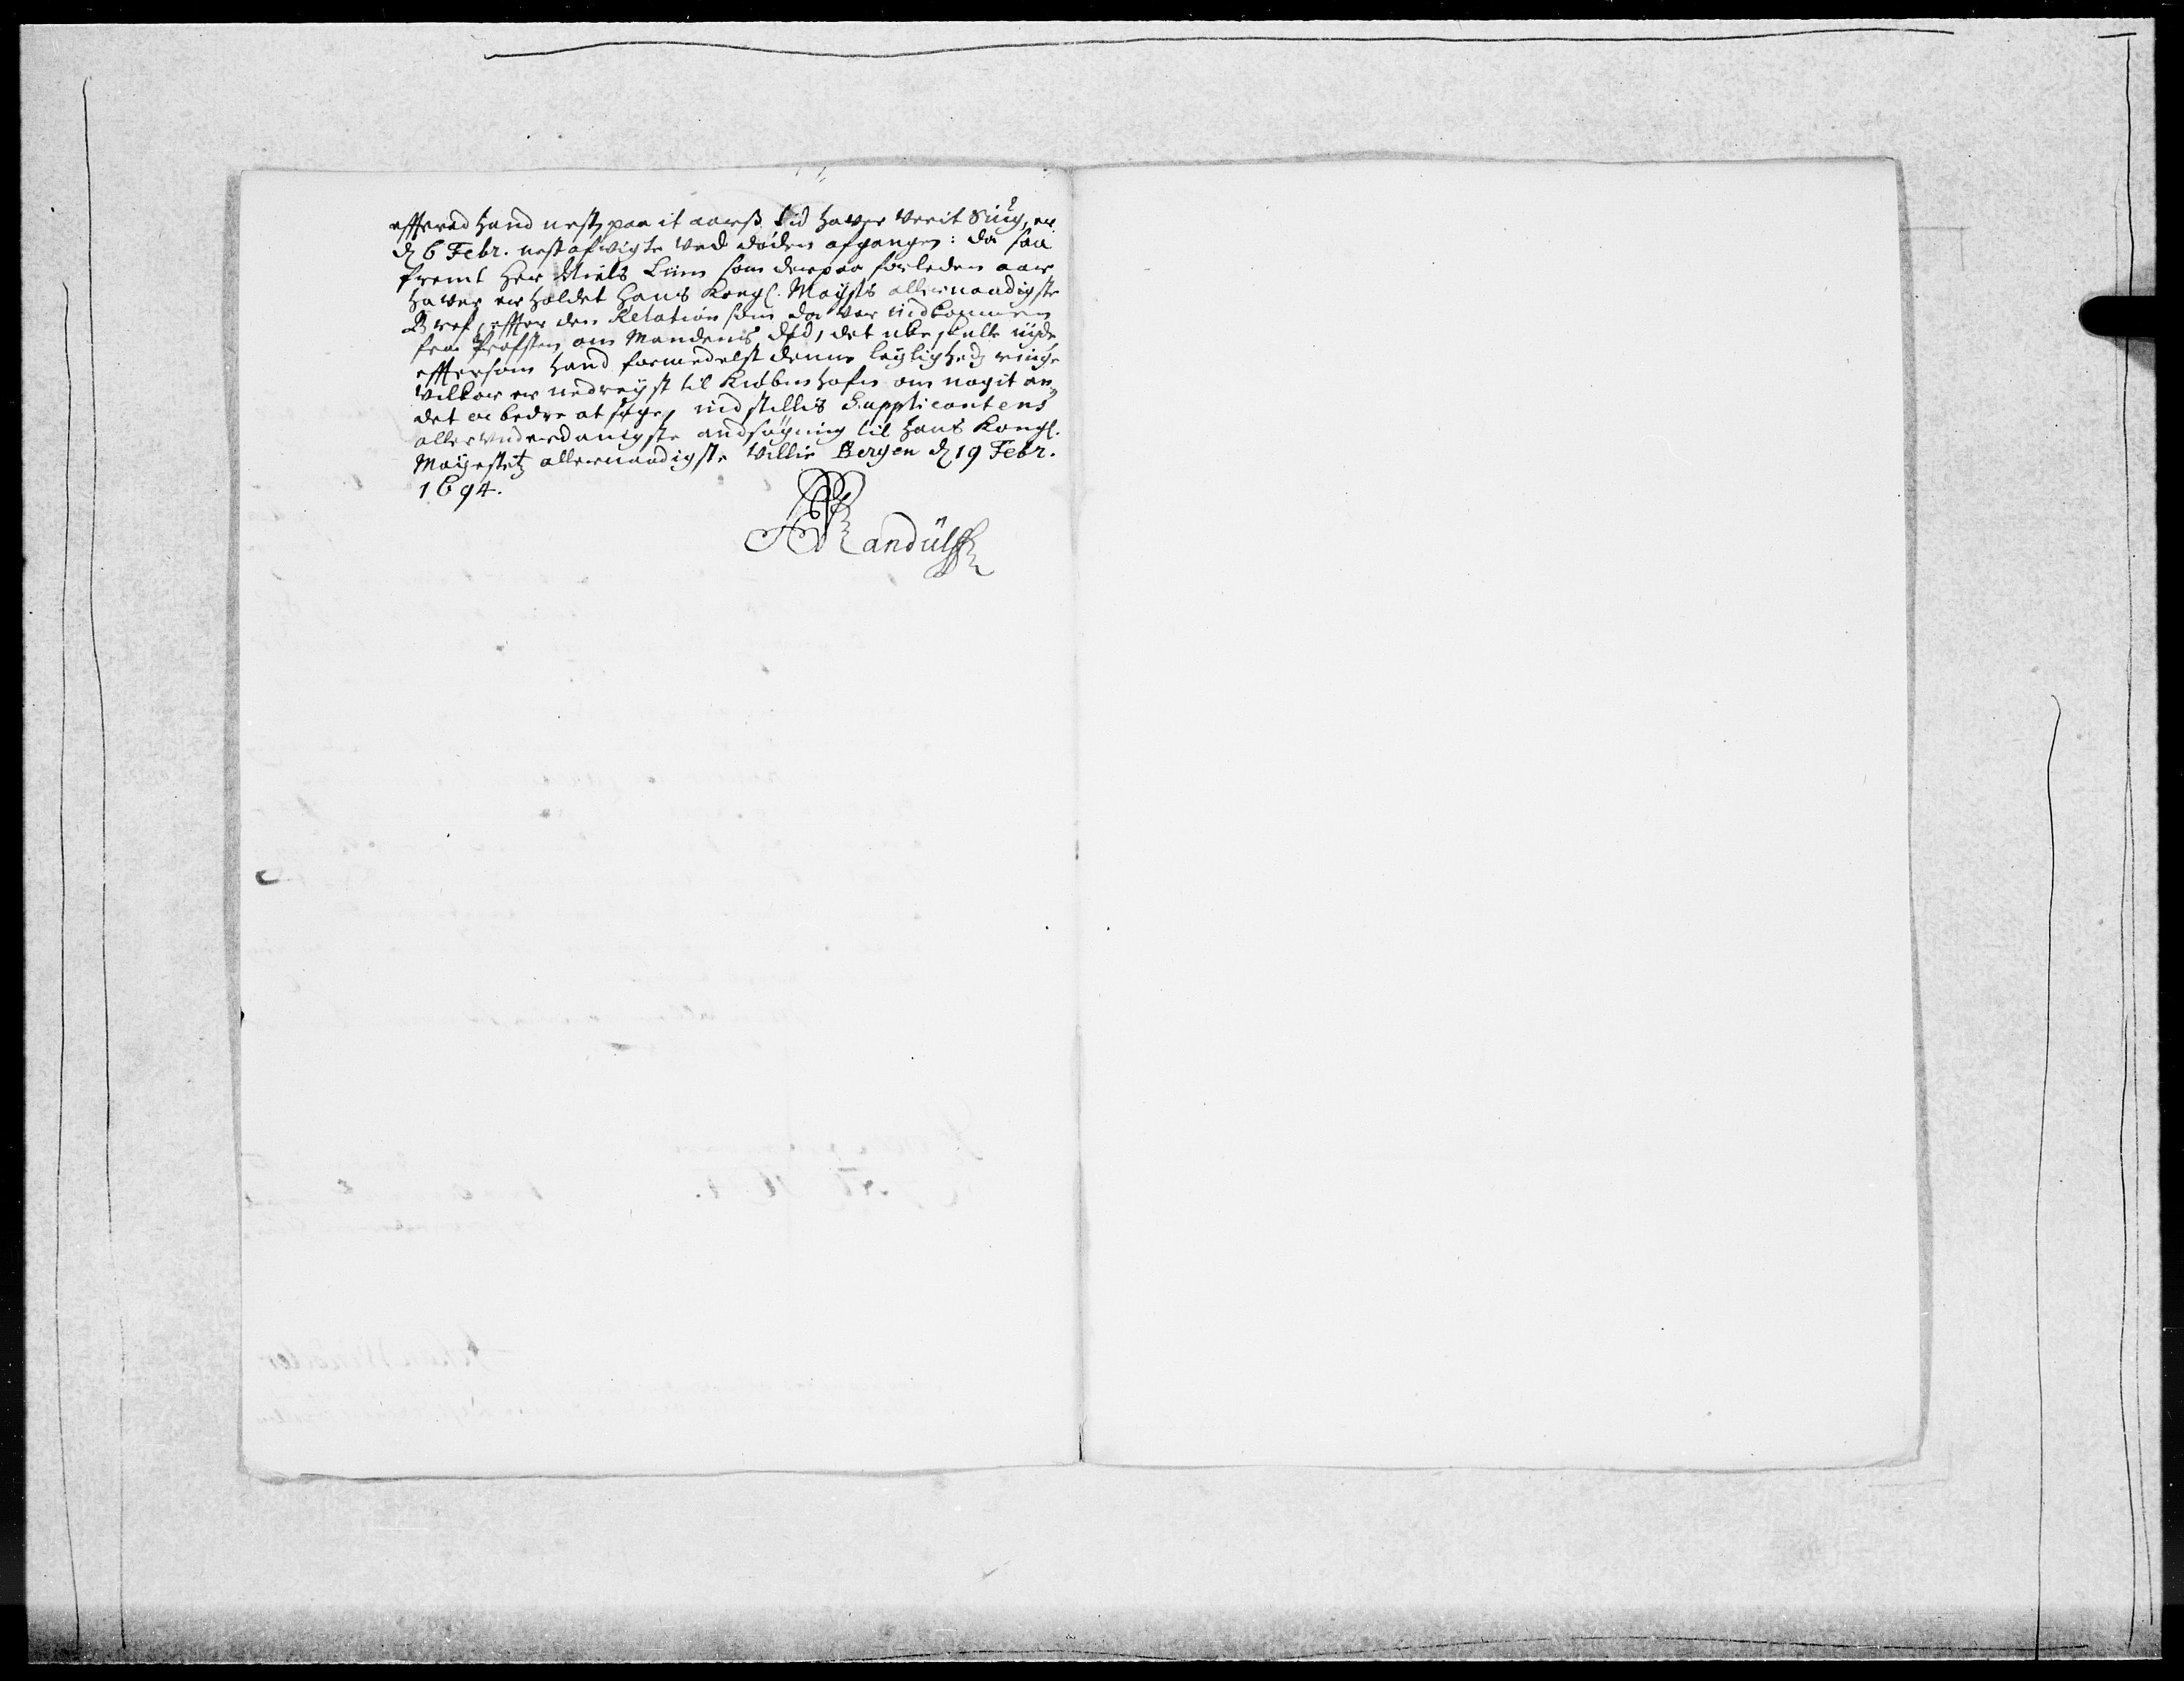 effterad Hand nest paa it aarss tid hafver verit siug, er
d 6 Febr. nestafvigte ved døden afgangen: da saa
fremt Her Niels Lim som derpaa forleden aar
hafver erholdet Hans Kongl. Mayts allernaadigste
Bref, effter den Relation som da var indkommen
fra Profsten om Mandens død, det icke skulle nyde
efftersom hand formedelst denne leylighedz ringe
vilkor er nedreyst til Kiøbenhafn om nogit an¬
det oc bedre at søge, indstillis Supplicantens
allerunderdanigste andsøgning til Hans Kongl.
Mayestetz allernaadigste Villie Bergen d 19 Febr.
1694.
Randulff